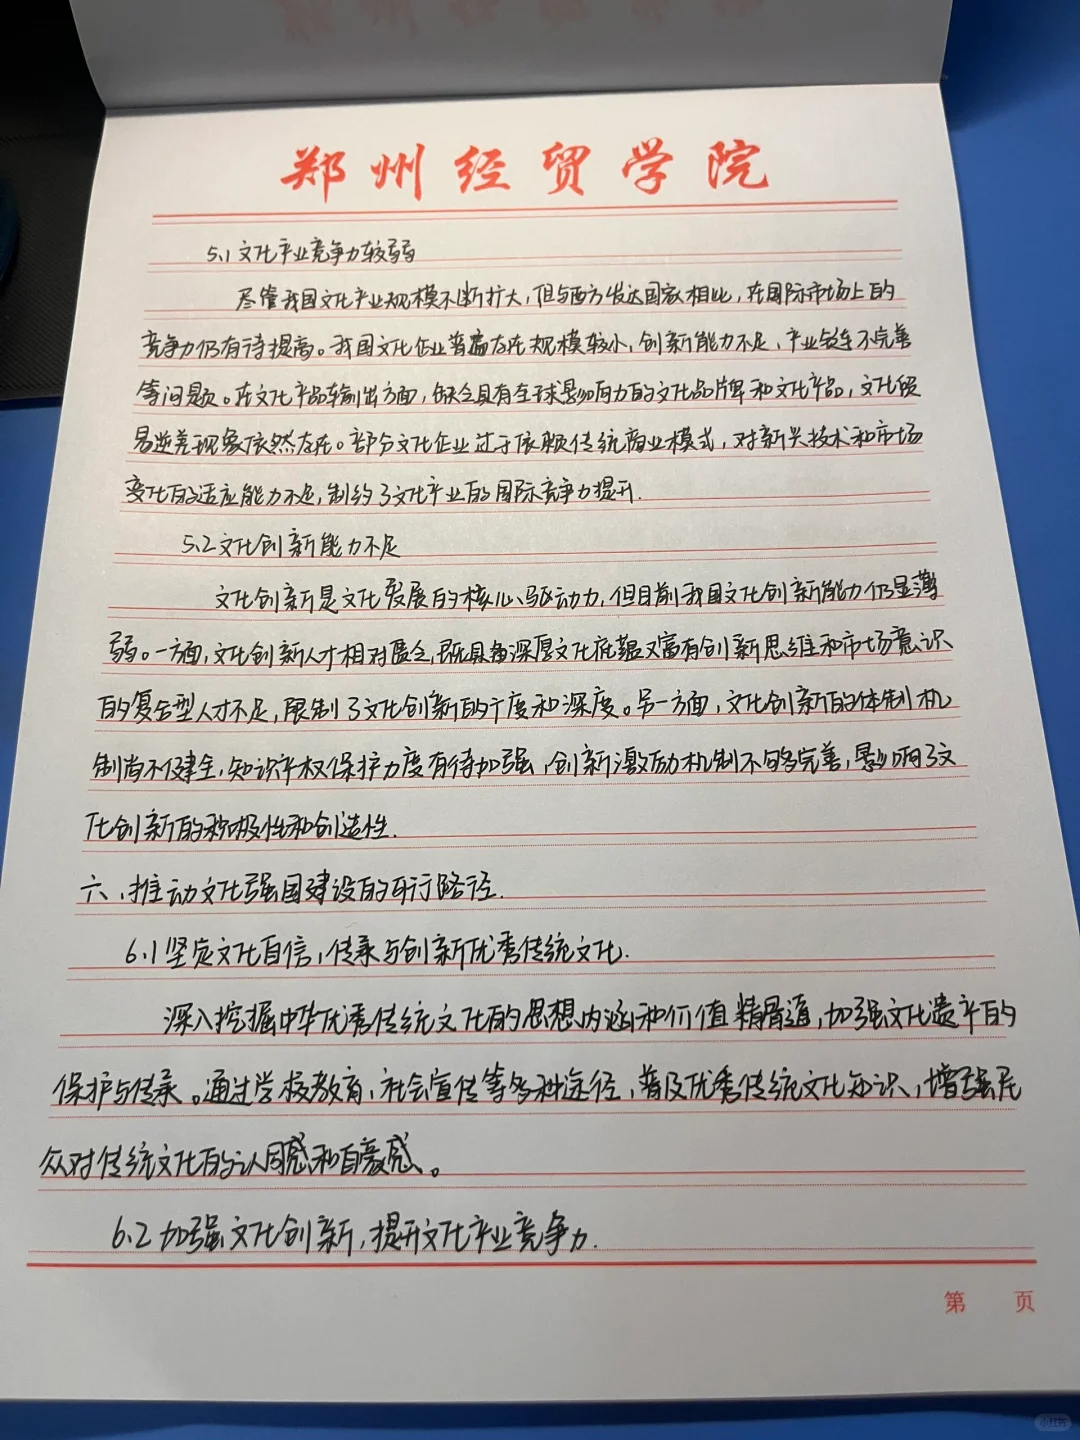 郑州经贸学院
5.1 文化产业竞争力较弱
尽管我国文化产业规模不断扩大，但与西方发达国家相比，在国际市场上的
竞争力仍有待提高。我国文化企业普遍存在规模较小、创新能力不足、产业链不完善
等问题。在文化产品输出方面，缺乏具有全球影响力的文化品牌和文化产品，文化贸
易逆差现象依然存在。部分文化企业过于依赖传统商业模式，对新兴技术和市场
变化的适应能力不足，制约了文化产业的国际竞争力提升.
5.2 文化创新能力不足
文化创新是文化发展的核心驱动力，但目前我国文化创新能力仍显薄
弱。一方面，文化创新人才相对匮乏，既具备深厚文化底蕴又富有创新思维和市场意识
的复合型人才不足，限制了文化创新的广度和深度。另一方面，文化创新的体制机
制尚不健全，知识产权保护力度有待加强，创新激励机制不够完善，影响了文
化创新的积极性和创造性.
六、推动文化强国建设的可行路径.
6.1 坚定文化自信，传承与创新优秀传统文化.
深入挖掘中华优秀传统文化的思想内涵和价值精髓，加强文化遗产的
保护与传承。通过学校教育、社会宣传等多种途径，普及优秀传统文化知识，增强民
众对传统文化的认同感和自豪感。
6.2 加强文化创新，提升文化产业竞争力.
第 页
小红书